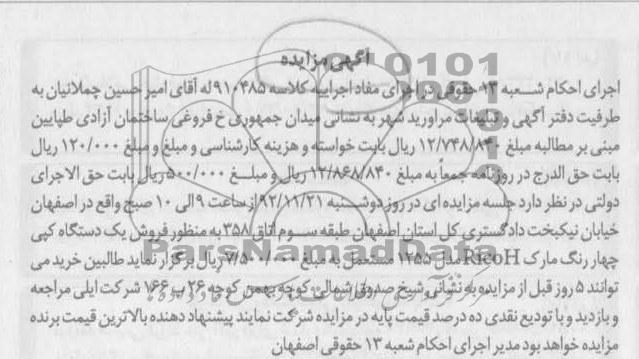 آگهی مزایده
اجرای احکام شــعبه ۱۳ حقوقی در اجرای مفاد اجراییه کلاسه ۹۱۰۴۸۵ له آقای امیر حسین چملانیان به
طرفیت دفتر آگهی و تبلیغات مراورید شهر به نشانی میدان جمهوری خ فروغی ساختمان آزادی طپایین
مبنی بر مطالبه مبلغ ۱۲/۷۴۸/۸۴۰ ریال بابت خواسته و هزینه کارشناسی و مبلغ و مبلغ ۱۲۰/۰۰۰ ریال
بابت حق الدرج در روزنامه جمعاً به مبلغ ۱۲/۸۶۸/۸۴۰ ریال و مبلــغ ۵۰۰/۰۰۰ ریال بابت حق الاجرای
دولتی در نظر دارد جلسه مزایده ای در روز دوشــنبه ۹۲/۱۱/۲۱ از ساعت ۹ الی ۱۰ صبح واقع در اصفهان
خیابان نیکبخت دادگستری کل استان اصفهان طبقه ســوم اتاق ۳۵۸ به منظور فروش یک دستگاه کپی
چهار رنگ مارک RicoH مدل ۱۲۵۵ مستعمل به مبلغ ۷/۵۰۰/۰۰۰ ریال برگزار نماید طالبین خرید می
توانند ۵ روز قبل از مزایده به نشانی شیخ صدوق شمالی کوچه بهمن کوچه ۲۶ پ ۱۶۶ شرکت ایلی مراجعه
و بازدید و با تودیع نقدی ده درصد قیمت پایه در مزایده شرکت نمایند پیشنهاد دهنده بالاترین قیمت برنده
مزایده خواهد بود مدیر اجرای احکام شعبه ۱۳ حقوقی اصفهان
ParsNamadData